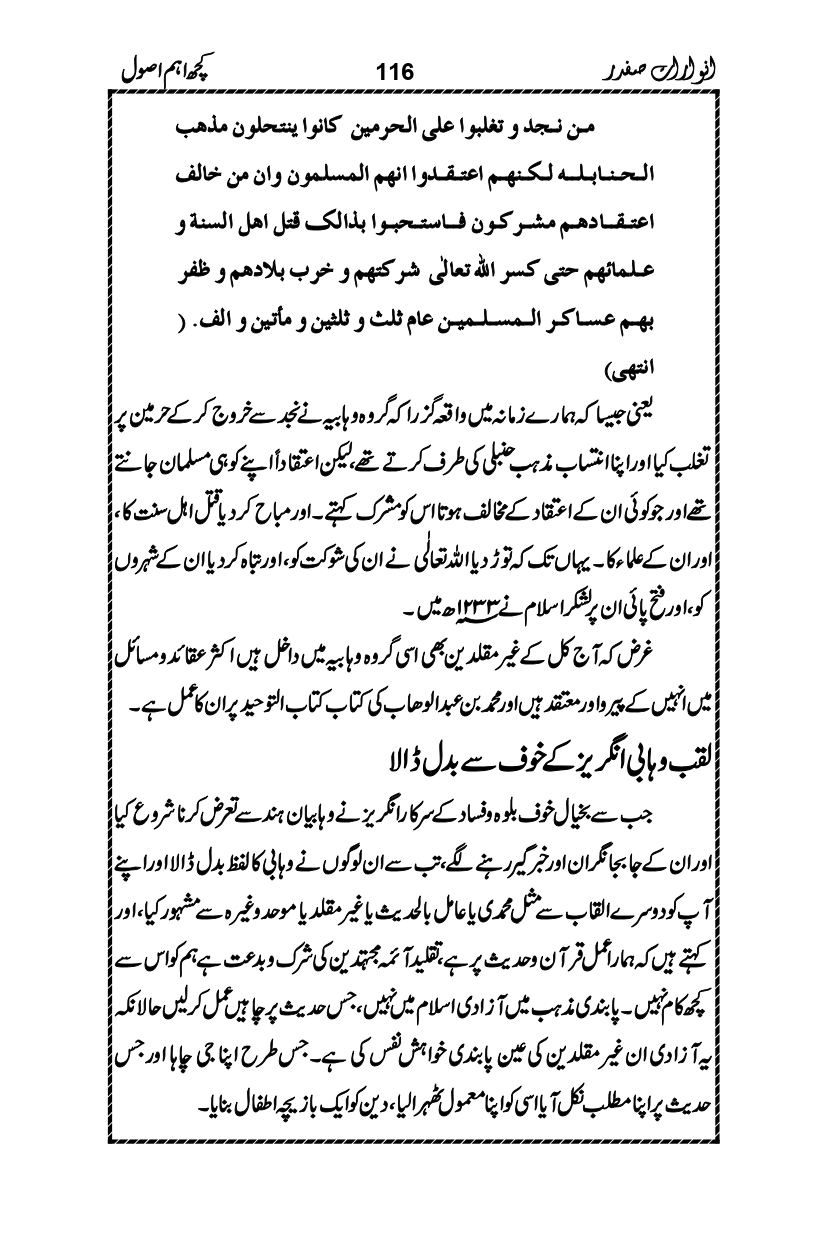 انوارات صفدر 116 کچھ اہم اصول
من نجد و تغلبوا علی الحرمین کانوا ینتحلون مذھب
الحنابلہ لکنھم اعتقدوا انھم المسلمون وان من خالف
اعتقادھم مشرکون فاستحبوا بذالک قتل اھل السنة و
علمائھم حتی کسر اللہ تعالٰی شرکتھم و خرب بلادھم و ظفر
بھم عساکر المسلمین عام ثلث و ثلثین و مأتین و الف. (
انتھی)
یعنی جیسا کہ ہمارے زمانہ میں واقعہ گزرا کہ گروہ وہابیہ نے نجد سے خروج کر کے حرمین پر
تغلب کیا اور اپنا انتساب مذہب حنبلی کی طرف کرتے تھے، لیکن اعتقاداً اپنے کو ہی مسلمان جانتے
تھے اور جو کوئی ان کے اعتقاد کے مخالف ہوتا اس کو مشرک کہتے۔ اور مباح کر دیا قتل اہل سنت کا،
اور ان کے علماء کا۔ یہاں تک کہ توڑ دیا اللہ تعالٰی نے ان کی شوکت کو، اور تباہ کر دیا ان کے شہروں
کو، اور فتح پائی ان پر لشکر اسلام نے ۱۲۳۳ھ میں۔
غرض کہ آج کل کے غیر مقلدین بھی اسی گروہ وہابیہ میں داخل ہیں اکثر عقائد و مسائل
میں انہیں کے پیرو اور معتقد ہیں اور محمد بن عبدالوھاب کی کتاب کتاب التوحید پر ان کا عمل ہے۔
لقب وہابی انگریز کے خوف سے بدل ڈالا
جب سے بخیال خوف بلوہ و فساد کے سرکار انگریز نے وہابیان ہند سے تعرض کرنا شروع کیا
اور ان کے جابجا نگران اور خبر گیر رہنے لگے، تب سے ان لوگوں نے وہابی کا لفظ بدل ڈالا اور اپنے
آپ کو دوسرے القاب سے مثل محمدی یا عامل بالحدیث یا غیر مقلد یا موحد وغیرہ سے مشہور کیا، اور
کہتے ہیں کہ ہمارا عمل قرآن و حدیث پر ہے، تقلید آئمہ مجتہدین کی شرک و بدعت ہے ہم کو اس سے
کچھ کام نہیں۔ پابندی مذہب میں آزادی اسلام میں نہیں، جس حدیث پر چاہیں عمل کر لیں حالانکہ
یہ آزادی ان غیر مقلدین کی عین پابندی خواہش نفس کی ہے۔ جس طرح اپنا جی چاہا اور جس
حدیث پر اپنا مطلب نکل آیا اسی کو اپنا معمول ٹھہرا لیا، دین کو ایک بازیچہ اطفال بنایا۔